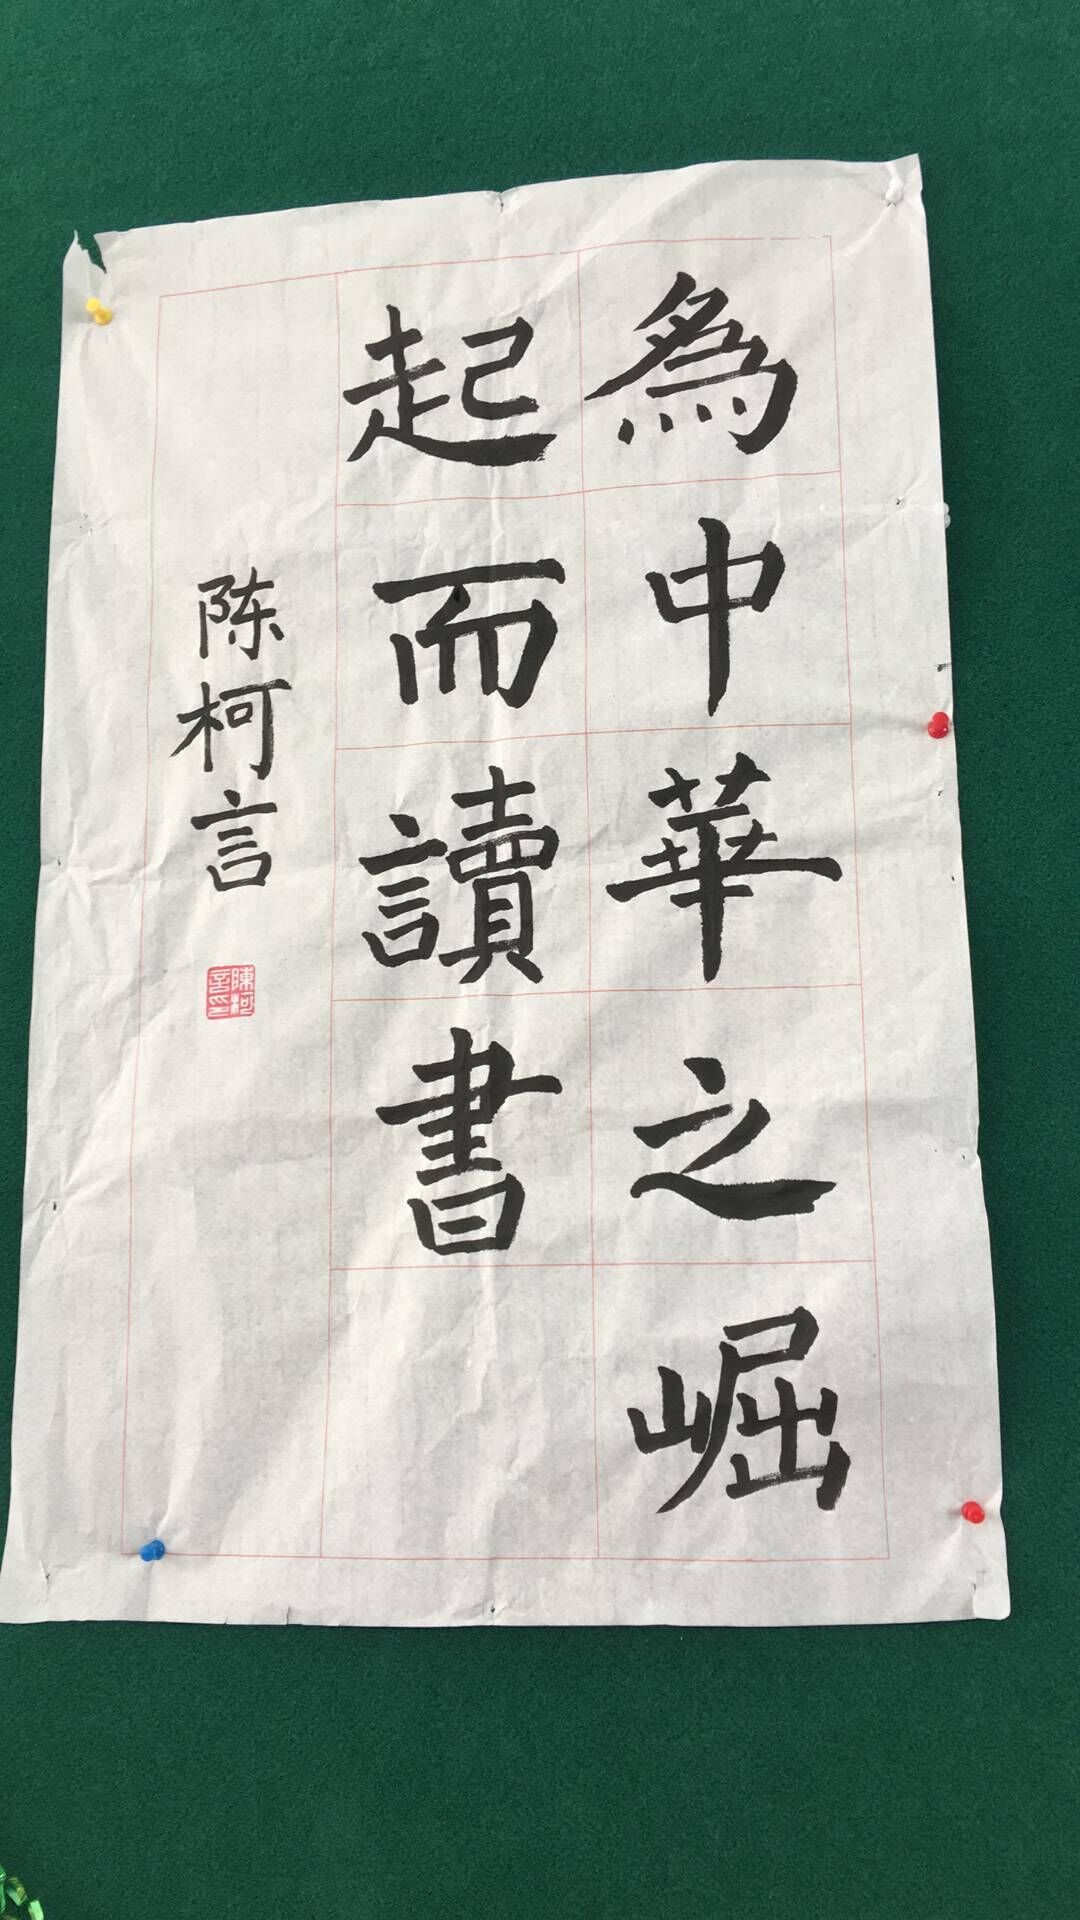 為中華之崛
起而讀書
陈柯言
陳柯
言印